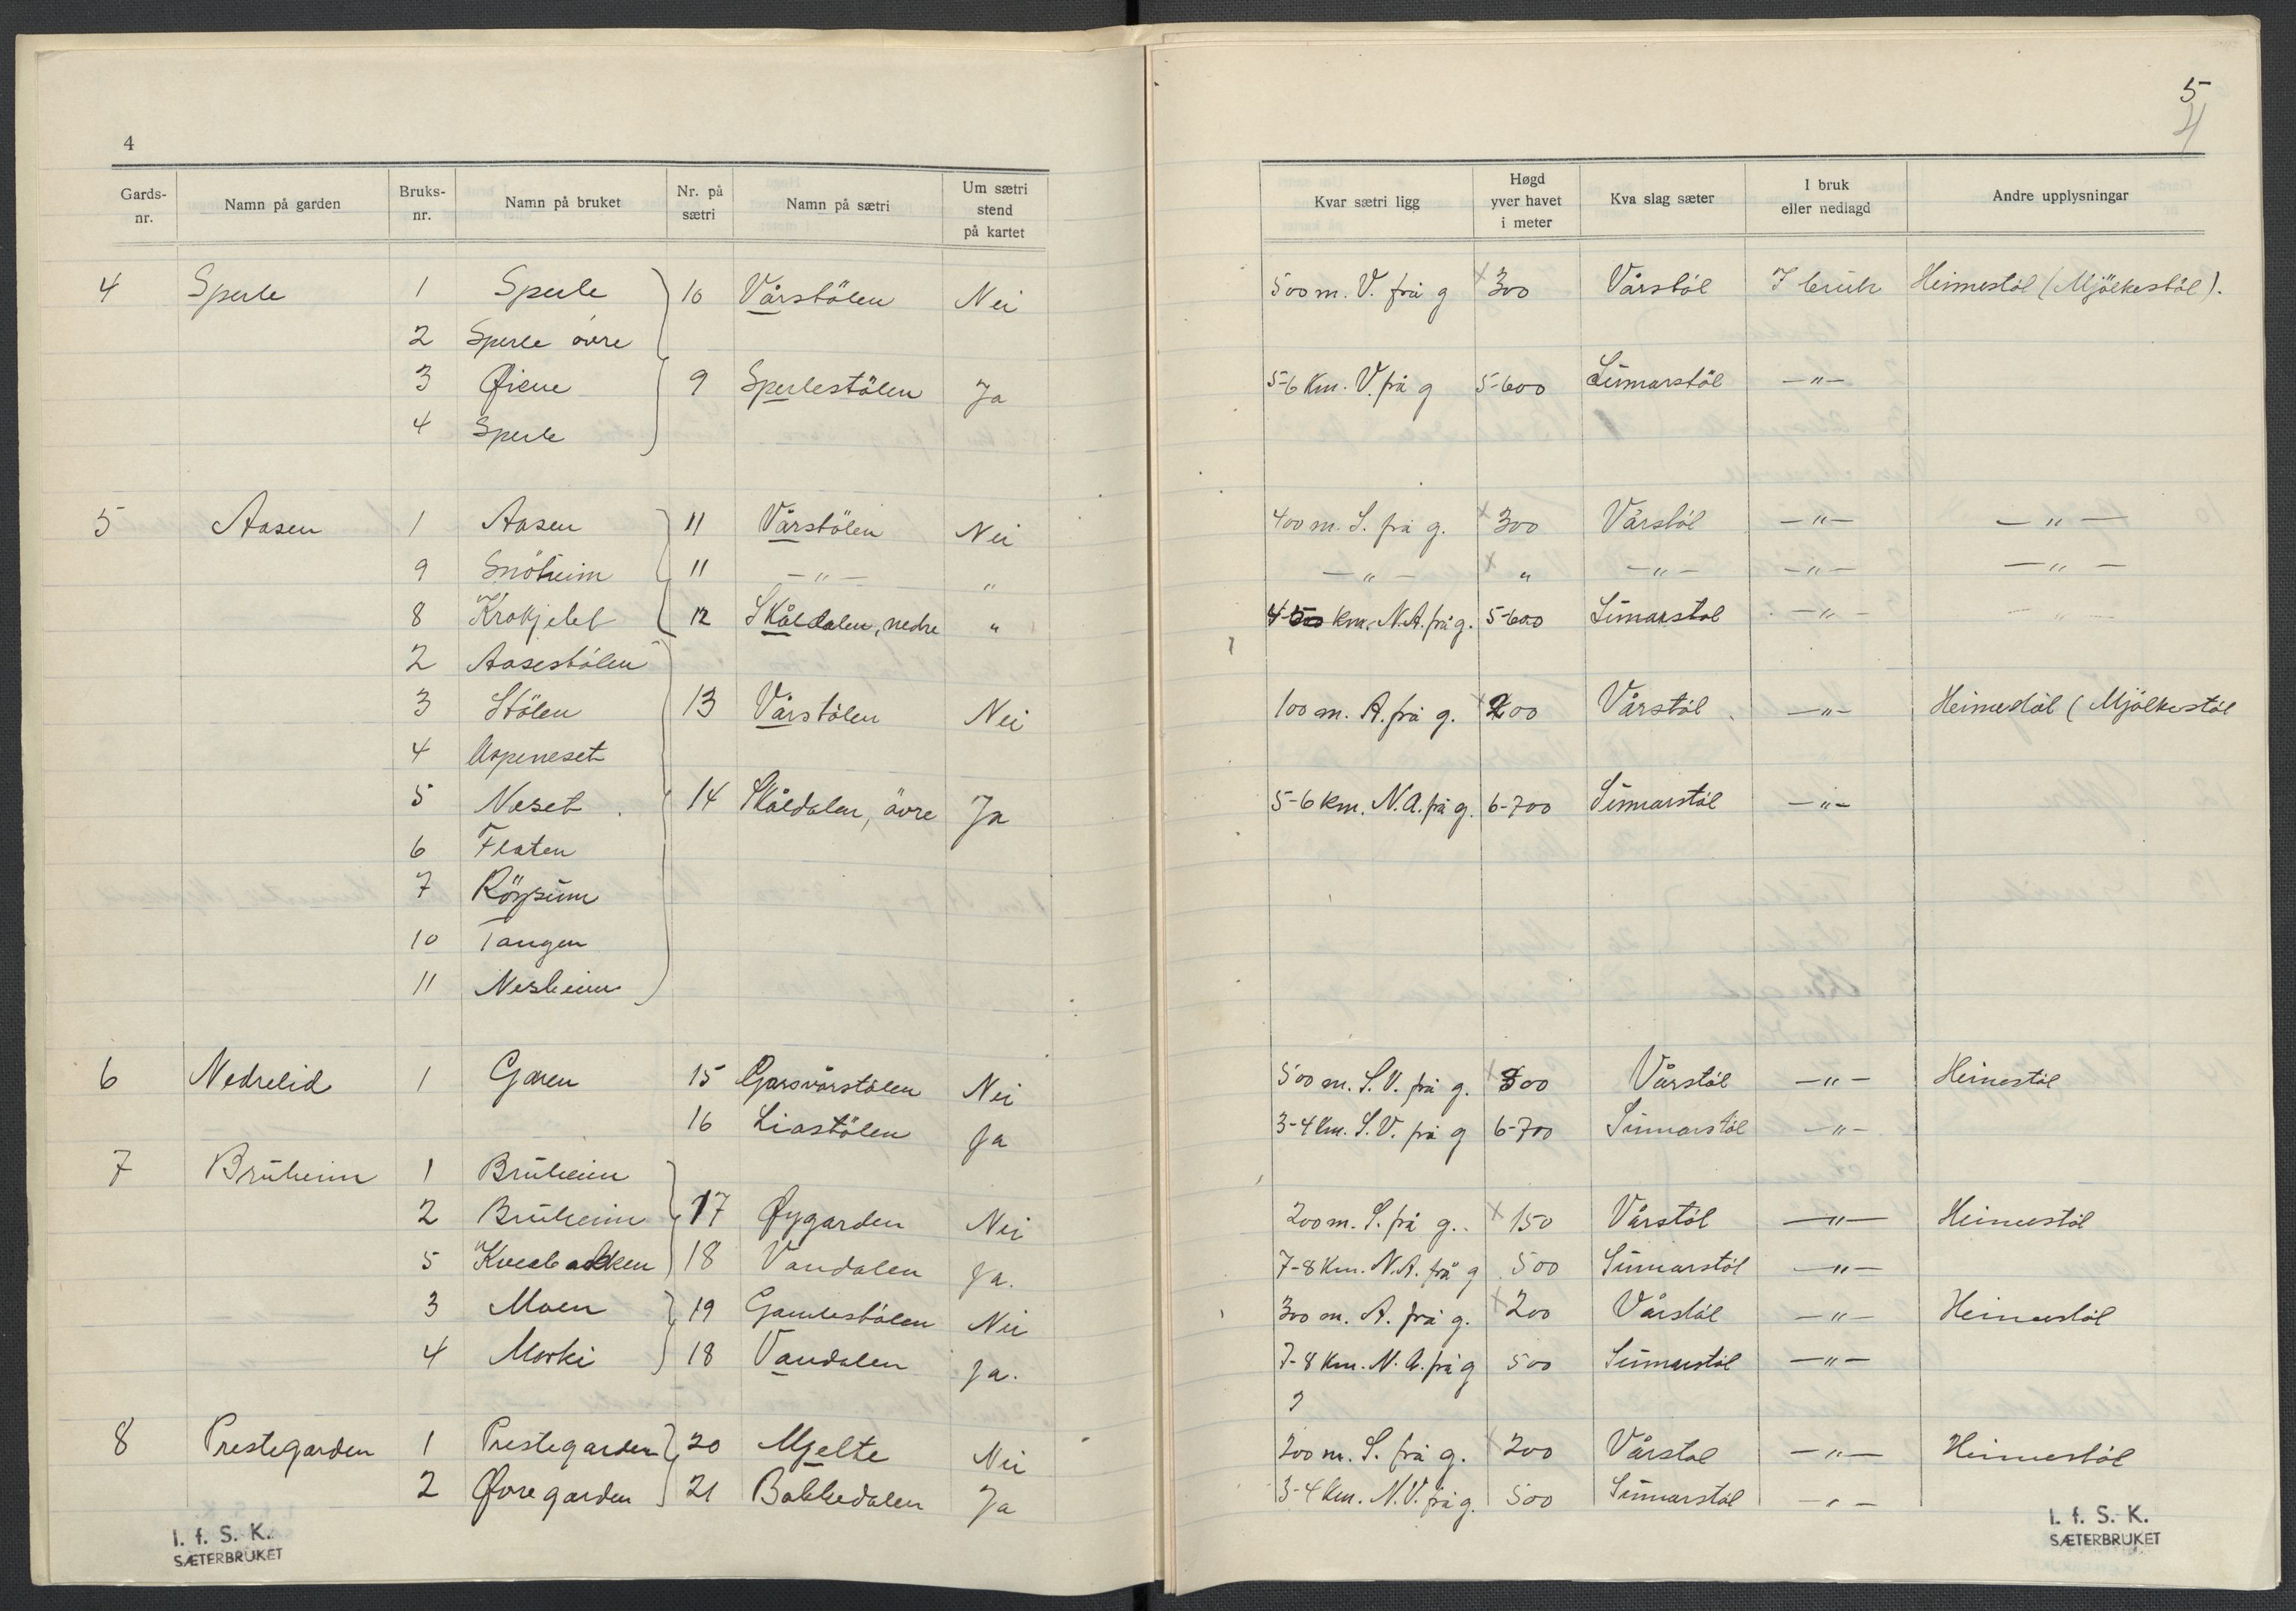 4
Gards-nr. Namn på garden Bruks-nr. Namn på bruket Nr. på sætri Namn på sætri Um sætri stend på kartet
4 Sperle 1 Sperle 10 Vårstölen Nei
2 Sperle övre
3 Øiene 9 Sperlestölen Ja
4 Sperle
5 Aasen 1 Aasen 11 Vårstölen Nei
9 Snöheim 11 —"— "
8 Krokjelet 12 Skåldalen, nedre "
2 Aasestölen
3 Stölen 13 Vårstölen Nei
4 Aspeneset
5 Neset 14 Skåldalen, övre Ja
6 Flaten
7 Röysum
10 Tangen
11 Nesheim
6 Nedrelid 1 Garen 15 Garsvårstölen Nei
16 Liastölen Ja
7 Bruheim 1 Bruheim
2 Bruheim 17 Øygarden Nei
5 Kvebakken 18 Vandalen Ja.
3 Moen 19 Gamlestölen Nei
4 Morki 18 Vandalen Ja.
8 Prestegarden 1 Prestegarden 20 Mjelte Nei
2 Øvregarden 21 Bakkedalen Ja
I. f. S. K.
SÆTERBRUKET
5
4
Kvar sætri ligg Høgd yver havet i meter Kva slag sæter I bruk eller nedlagd Andre upplysningar
500 m. V. frå g x 300 Vårstöl I bruk Heimestöl (Mjölkestöl).
5-6 km. V. frå g 5-600 Sumarstöl —"—
400 m. S. frå g. x 300 Vårstöl —"— —"—
—"— x " —"— —"— —"—
km. N.A. frå g. 5-600 Sumarstöl —"— "
100 m. A. frå g. x 200 Vårstöl —"— Heimestöl (Mjölkestöl
5-6 km. N.A. frå g. 6-700 Sumarstöl —"—
500 m. S.V. frå g. x 300 Vårstöl —"— Heimestöl
3-4 km. S.V. frå g 6-700 Sumarstöl —"—
200 m. S. frå g. x 150 Vårstöl —"— Heimestöl
7-8 km. N.A. frå g 500 Sumarstöl —"—
300 m. A. frå g. x 200 Vårstöl —"— Heimestöl
7-8 km. N.A. frå g 500 Sumarstöl —"—
?
200 m. S. frå g. x 200 Vårstöl —"— Heimestöl
3-4 km. N.V. frå g. 500 Sumarstöl —"—
I. f. S. K.
SÆTERBRUKET